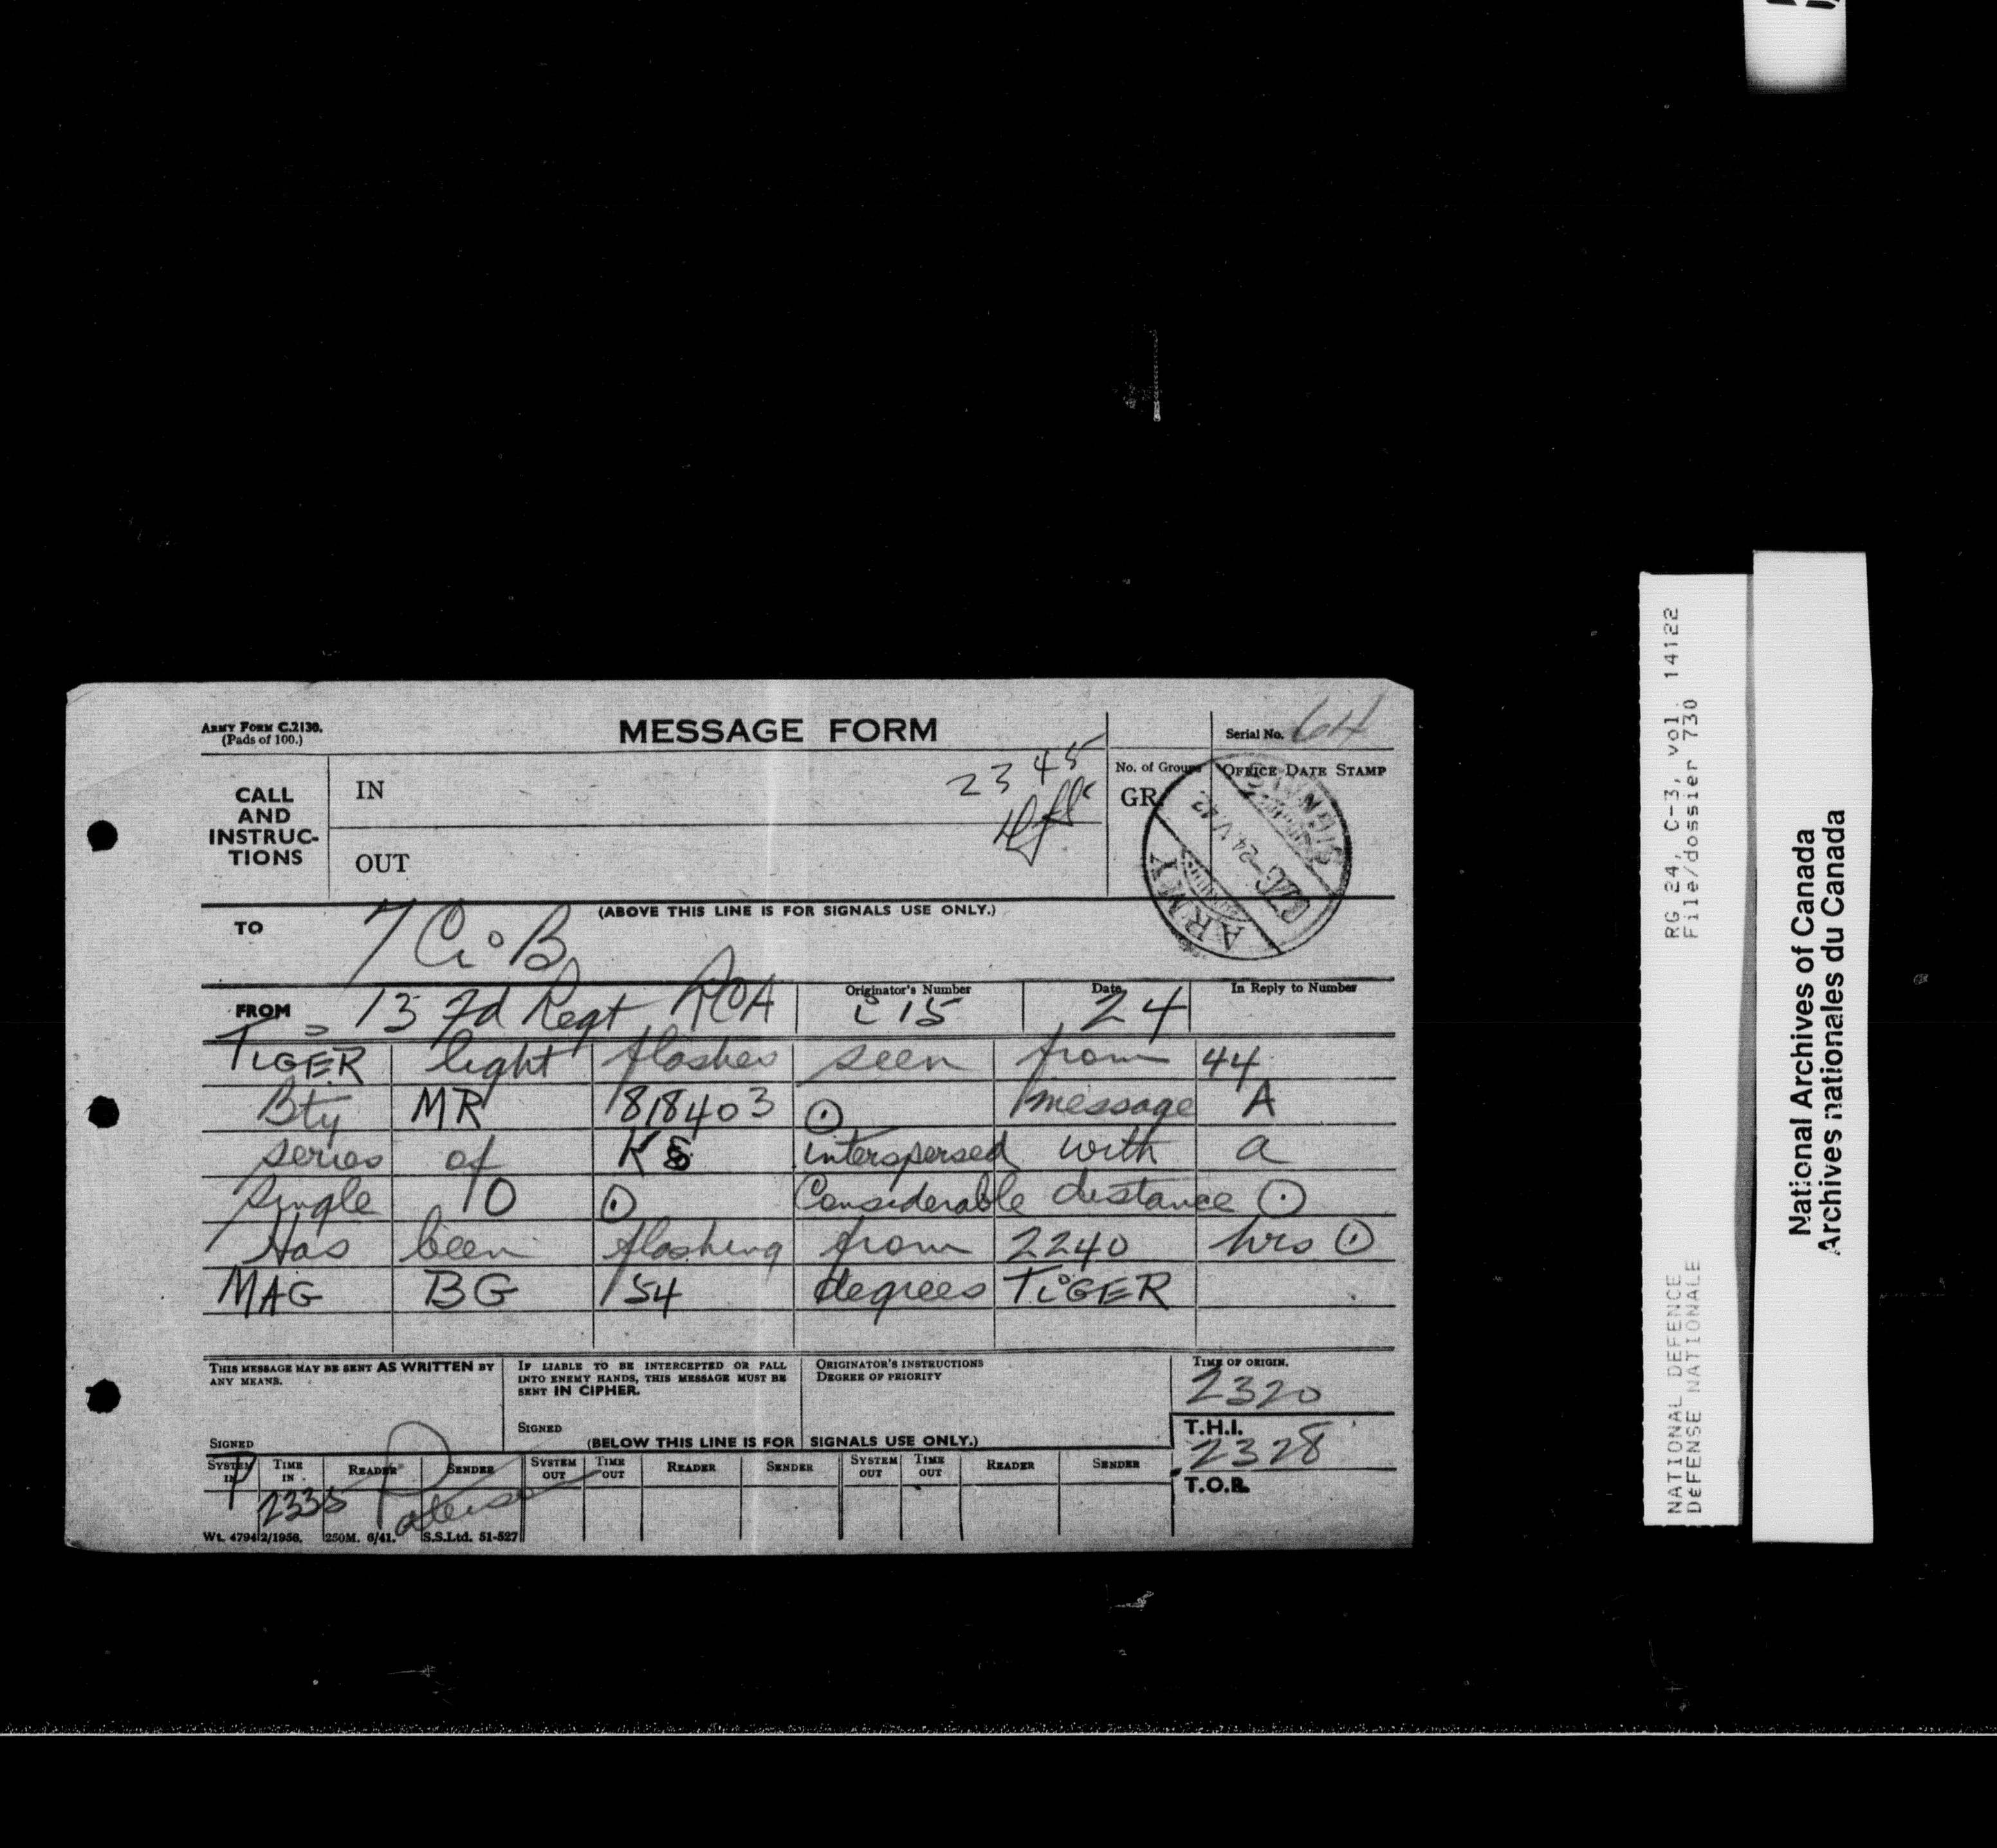 ARMY FORM C.2130.
(Pads of 100.)
MESSAGE FORM
Serial No. 64
CALL AND INSTRUC-TIONS
IN
2345
No. of Groups
GR
OFFICE DATE STAMP
OUT
ARMY
24 V 42
SIGNALS
(ABOVE THIS LINE IS FOR SIGNALS USE ONLY.)
TO 7 CiB
FROM 13 Fd Regt RCA Originator's Number i 15 Date 24 In Reply to Number
TiGER light flashes seen from 44
Bty MR 818403 ⊙ message A
series of Ks interspersed with a
single O ⊙ Considerable distance ⊙
Has been flashing from 2240 hrs ⊙
MAG BG 154 degrees TiGER
THIS MESSAGE MAY BE SENT AS WRITTEN BY
ANY MEANS.
SIGNED
IF LIABLE TO BE INTERCEPTED OR FALL
INTO ENEMY HANDS, THIS MESSAGE MUST BE
SENT IN CIPHER.
SIGNED
ORIGINATOR'S INSTRUCTIONS
DEGREE OF PRIORITY
TIME OF ORIGIN.
2320
T.H.I.
2328
T.O.R.
(BELOW THIS LINE IS FOR SIGNALS USE ONLY.)
SYSTEM IN TIME IN READER SENDER SYSTEM OUT TIME OUT READER SENDER SYSTEM OUT TIME OUT READER SENDER
2335
Wt. 47942/1956. 250M. 6/41. S.S.Ltd. 51-527
RG 24, C-3, vol. 14122
File/dossier 730
NATIONAL DEFENCE
DEFENSE NATIONALE
National Archives of Canada
Archives nationales du Canada